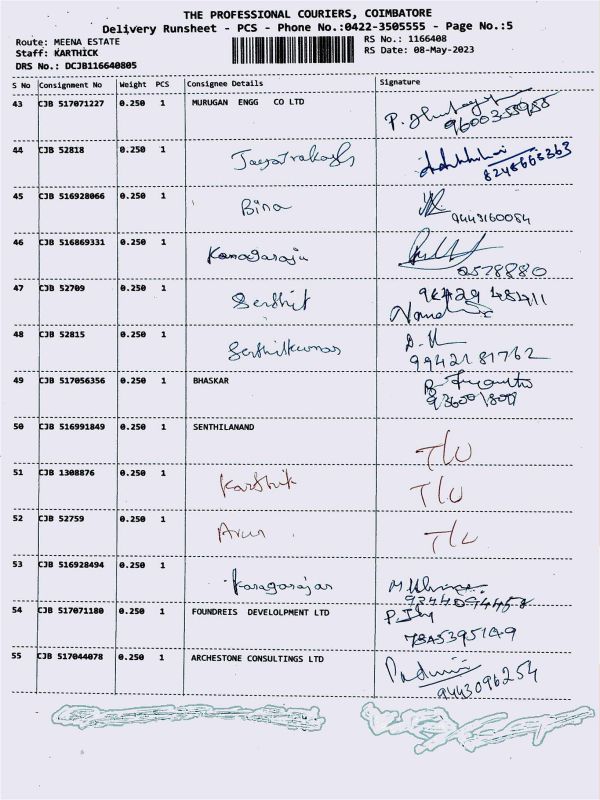 THE PROFESSIONAL COURIERS, COIMBATORE
Delivery Runsheet - PCS - Phone No.:0422-3505555 - Page No.:5
Route: MEENA ESTATE RS No.: 1166408
Staff: KARTHICK RS Date: 08-May-2023
DRS No.: DCJB116640805
S No Consignment No Weight PCS Consignee Details Signature
43 CJB 517071227 0.250 1 MURUGAN ENGG CO LTD
9600355955
44 CJB 52818 0.250 1 Jayaprakash
8248668363
45 CJB 516928066 0.250 1 Bina
9443160054
46 CJB 516869331 0.250 1 Kanagaraju
2578880
47 CJB 52709 0.250 1 Senthil
48 CJB 52815 0.250 1 Senthilkumar
9942181762
49 CJB 517056356 0.250 1 BHASKAR
50 CJB 516991849 0.250 1 SENTHILANAND
51 CJB 1308876 0.250 1 Karthik
52 CJB 52759 0.250 1 Arun
53 CJB 516928494 0.250 1
9344094458
54 CJB 517071180 0.250 1 FOUNDREIS DEVELOLPMENT LTD
55 CJB 517044078 0.250 1 ARCHESTONE CONSULTINGS LTD
9443096254